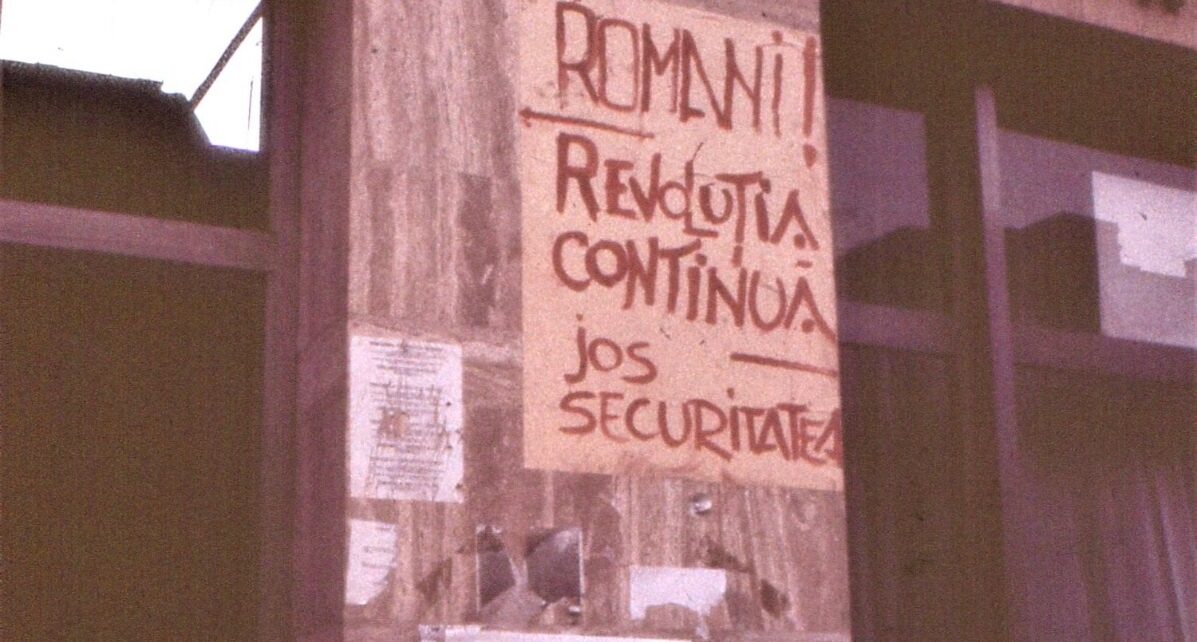 ROMANI!
REVOLUȚIA
CONTINUĂ
jos
SECURITATEA